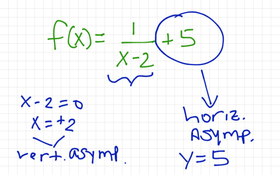 f(x) = 1/(x-2) + 5
x-2=0
x=+2
vert. asymp.
horiz.
asymp.
y=5